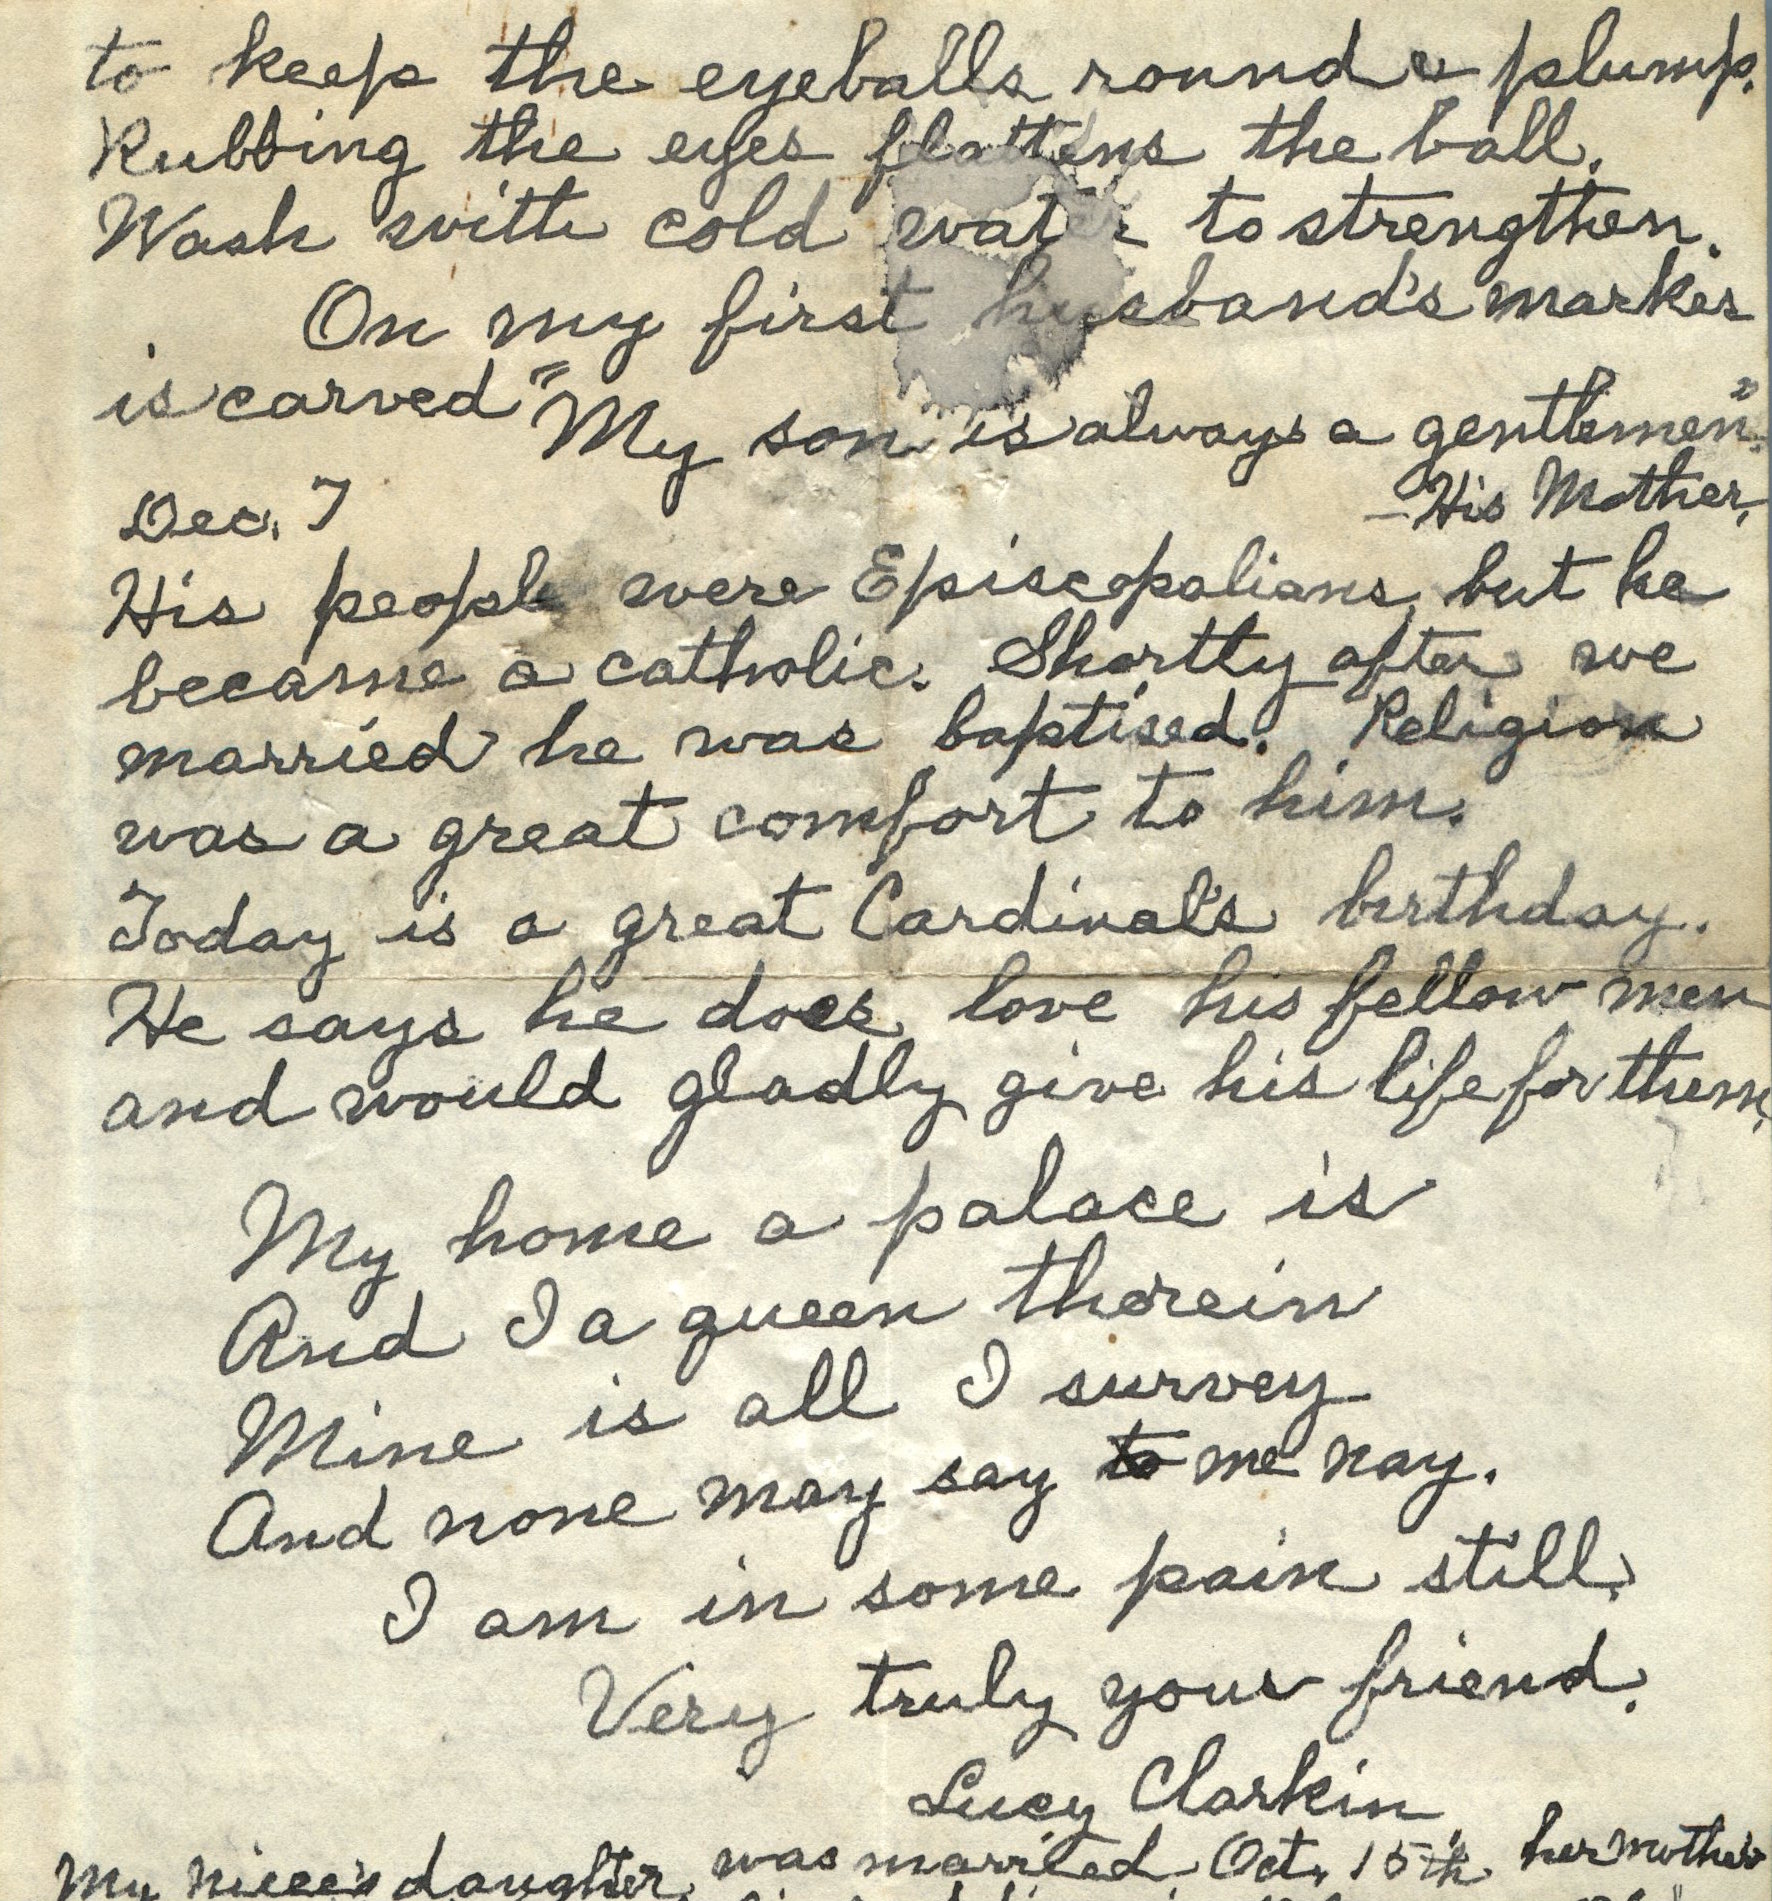 to keep the eyeballs round & plump.
Rubbing the eyes flattens the ball.
Wash with cold water to strengthen.
On my first husband's marker
is carved "My son is always a gentlemen".
- His Mother.
Dec. 7
His people were Episcopalians, but he
became a catholic. Shortly after we
married he was baptised. Religion
was a great comfort to him.
Today is a great Cardinal's birthday.
He says he does love his fellow men
and would gladly give his life for them.
My home a palace is
And I a queen therein
Mine is all I survey
And none may say to me nay.
I am in some pain still.
Very truly your friend.
Lucy Clarkin
My niece's daughter was married Oct. 15th her mother